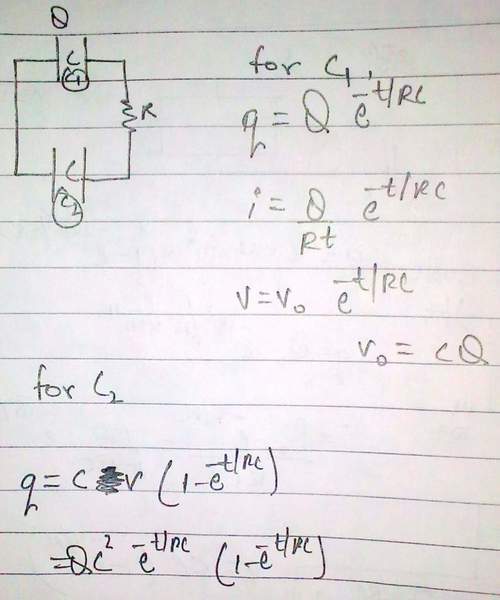 Q
C
C1
R
C
C2
for C₁,
q = Q e^{-t/RC}
i = Q/Rt e^{-t/RC}
v = v₀ e^{-t/RC}
v₀ = cQ
for C₂
q = c v (1-e^{-t/RC})
= Qc² e^{-t/RC} (1-e^{-t/RC})